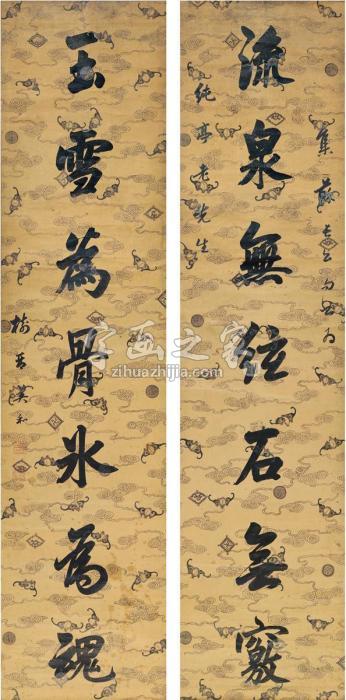 流泉無弦石無竅
集蘇長公句為
純亭老先生
玉雪為骨冰為魂
字画之家
zihuazhijia.com